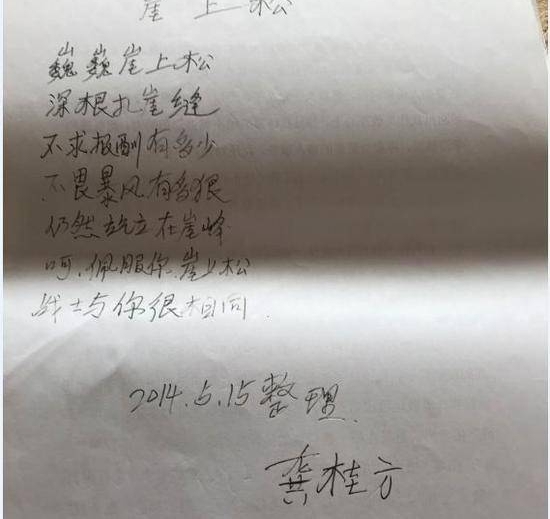 崖上松
巍巍崖上松
深根扎崖缝
不求报酬有多少
不畏暴风有多狠
仍然屹立在崖峰
呵、佩服你崖上松
战士与你很相同.
2014.5.15整理
龚桂方